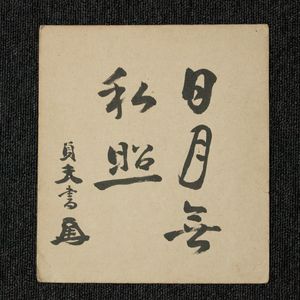 日月無
私照
貞夫書